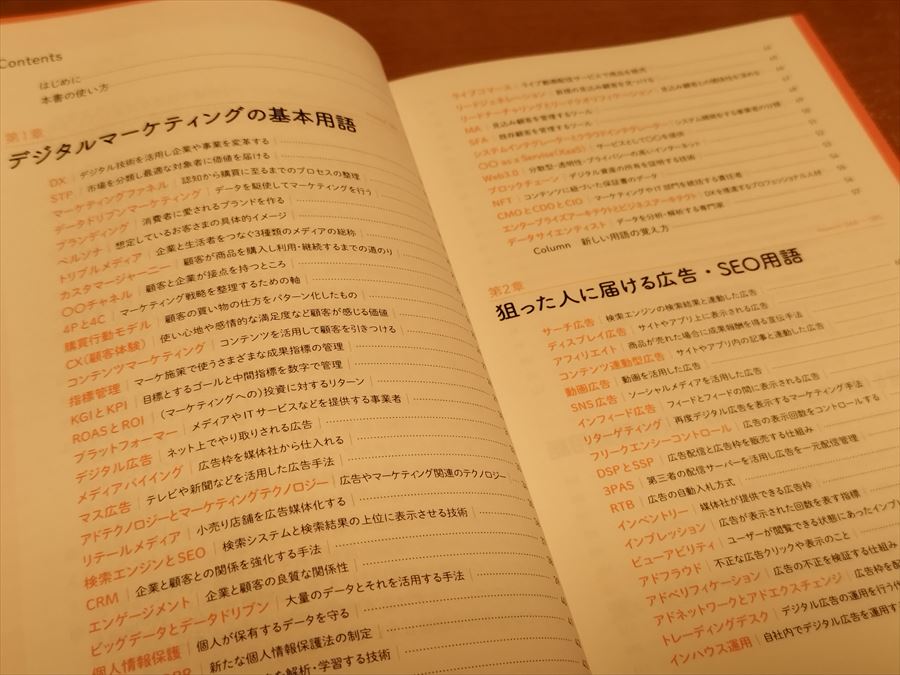 Contents
はじめに
本書の使い方
第1章
デジタルマーケティングの基本用語
DX | デジタル技術を活用し企業や事業を変革する
STP | 市場を分類し最適な対象者に価値を届ける
マーケティングファネル | 認知から購買に至るまでのプロセスの整理
データドリブンマーケティング | データを駆使してマーケティングを行う
ブランディング | 消費者に愛されるブランドを作る
ペルソナ | 想定しているお客さまの具体的イメージ
トリプルメディア | 企業と生活者をつなぐ3種類のメディアの総称
カスタマージャーニー | 顧客が商品を購入し利用・継続するまでの道のり
〇〇チャネル | 顧客と企業が接点を持つところ
4Pと4C | マーケティング戦略を整理するための軸
購買行動モデル | 顧客の買い物の仕方をパターン化したもの
CX(顧客体験) | 使い心地や感情的な満足度など顧客が感じる価値
コンテンツマーケティング | コンテンツを活用して顧客を引きつける
指標管理 | マーケ施策で使うさまざまな成果指標の管理
KGIとKPI | 目標とするゴールと中間指標を数字で管理
ROASとROI | (マーケティングへの)投資に対するリターン
プラットフォーマー | メディアやITサービスなどを提供する事業者
デジタル広告 | ネット上でやり取りされる広告
メディアバイイング | 広告枠を媒体社から仕入れる
マス広告 | テレビや新聞などを活用した広告手法
アドテクノロジーとマーケティングテクノロジー | 広告やマーケティング関連のテクノロジー
リテールメディア | 小売り店舗を広告媒体化する
検索エンジンとSEO | 検索システムと検索結果の上位に表示させる技術
CRM | 企業と顧客との関係を強化する手法
エンゲージメント | 企業と顧客の良質な関係性
ビッグデータとデータドリブン | 大量のデータとそれを活用する手法
個人情報保護 | 個人が保有するデータを守る
新たな個人情報保護法の制定
を解析・学習する技術
ライブコマース | ライブ動画配信サービスで商品を販売
リードジェネレーション | 新規の見込み顧客を見つける
リードナーチャリングとリードクオリフィケーション | 見込み顧客との関係性を深める
MA | 見込み顧客を管理するツール
SFA | 既存顧客を管理するツール
システムインテグレータとクラウドインテグレーター | システム開発をする事業者の分類
〇〇 as a Service(XaaS) | サービスとして〇〇を提供
Web3.0 | 分散型・透明性・プライバシーの高いインターネット
ブロックチェーン | デジタル資産の所有を証明する技術
NFT | コンテンツに紐づいた保証書のデータ
CMOとCDOとCIO | マーケティングやIT部門を統括する責任者
エンタープライズアーキテクトとビジネスアーキテクト | DXを推進するプロフェッショナル人材
データサイエンティスト | データを分析・解析する専門家
Column 新しい用語の覚え方
第2章
狙った人に届ける広告・SEO用語
サーチ広告 | 検索エンジンの検索結果と連動した広告
ディスプレイ広告 | サイトやアプリ上に表示される広告
アフィリエイト | 商品が売れた場合に成果報酬を得る宣伝手法
コンテンツ連動型広告 | サイトやアプリ内の記事と連動した広告
動画広告 | 動画を活用した広告
SNS広告 | ソーシャルメディアを活用した広告
インフィード広告 | フィードとフィードの間に表示される広告
リターゲティング | 再度デジタル広告を表示するマーケティング手法
フリークエンシーコントロール | 広告の表示回数をコントロールする
DSPとSSP | 広告配信と広告枠を販売する仕組み
3PAS | 第三者の配信サーバーを活用し広告を一元配信管理
RTB | 広告の自動入札方式
インベントリー | 媒体社が提供できる広告枠
インプレッション | 広告が表示された回数を表す指標
ビューアビリティ | ユーザーが閲覧できる状態にあったインプ
アドフラウド | 不正な広告クリックや表示のこと
アドベリフィケーション | 広告の不正を検証する仕組み
アドネットワークとアドエクスチェンジ | 広告枠を配
トレーディングデスク | デジタル広告の運用を行う
インハウス運用 | 自社内でデジタル広告を運用する